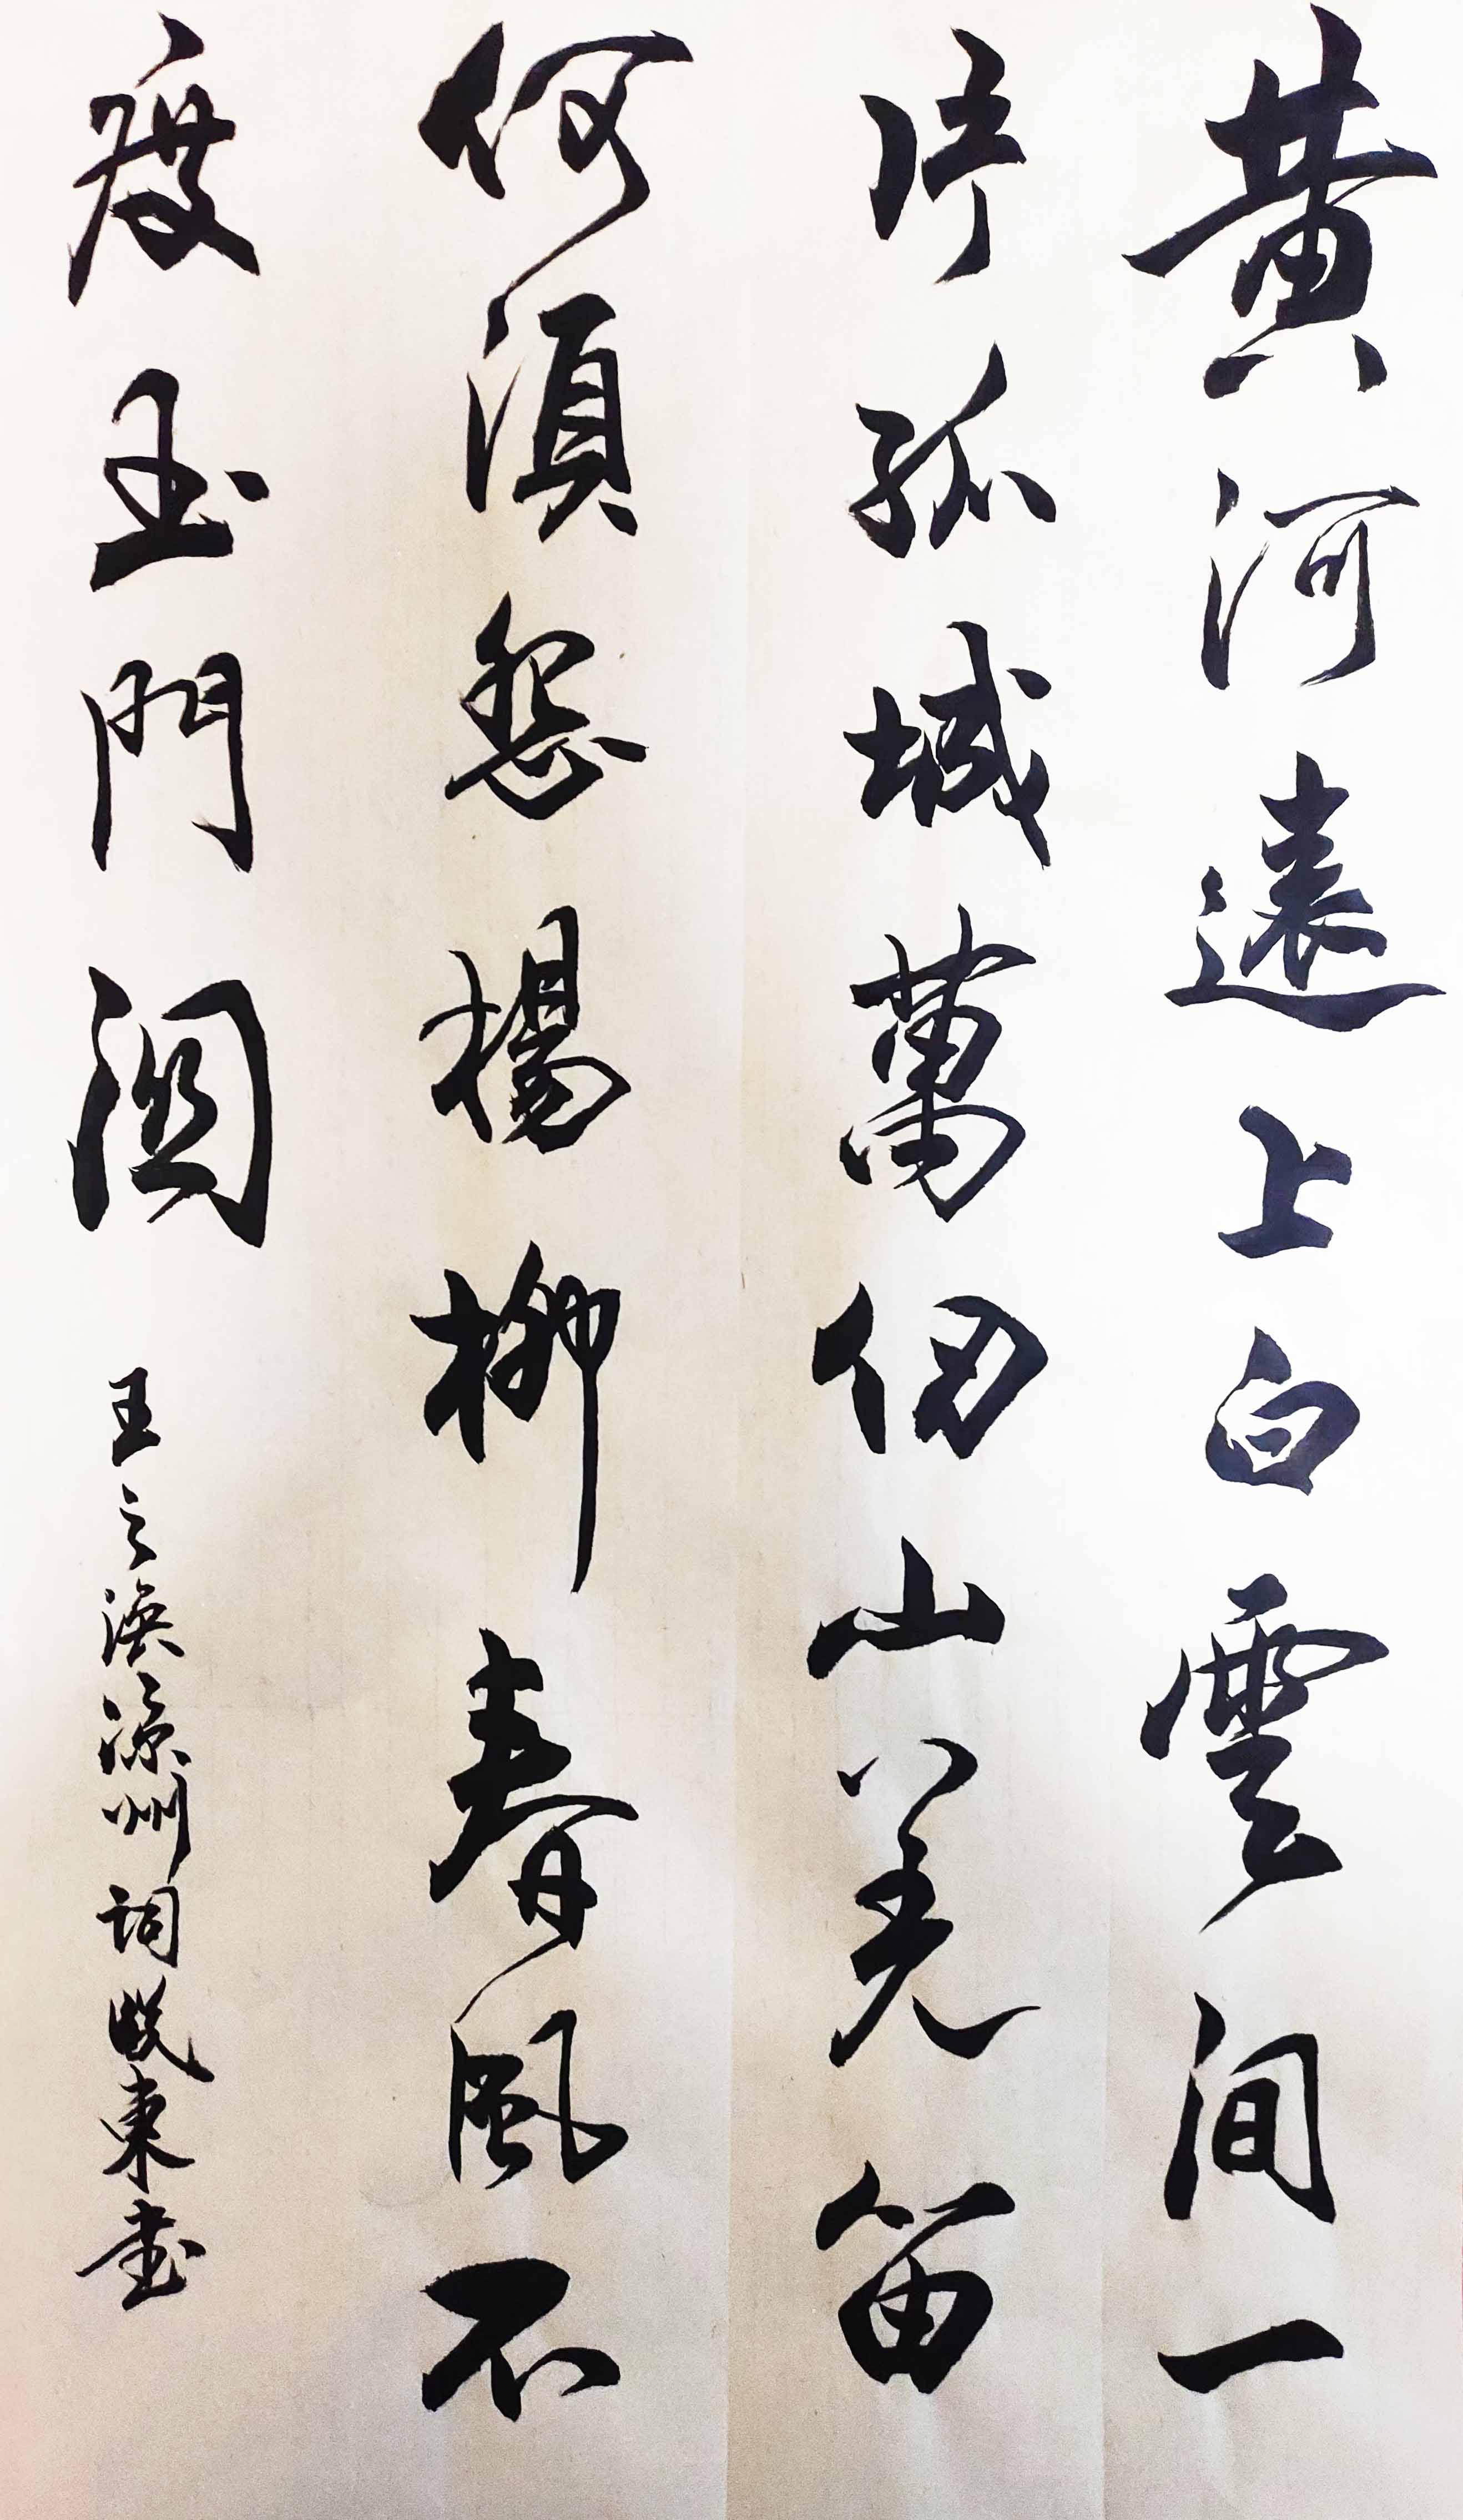 黃河遠上白雲間一
片孤城萬仞山羌笛
何須怨楊柳春風不
度玉門關
王之渙涼州詞 東書